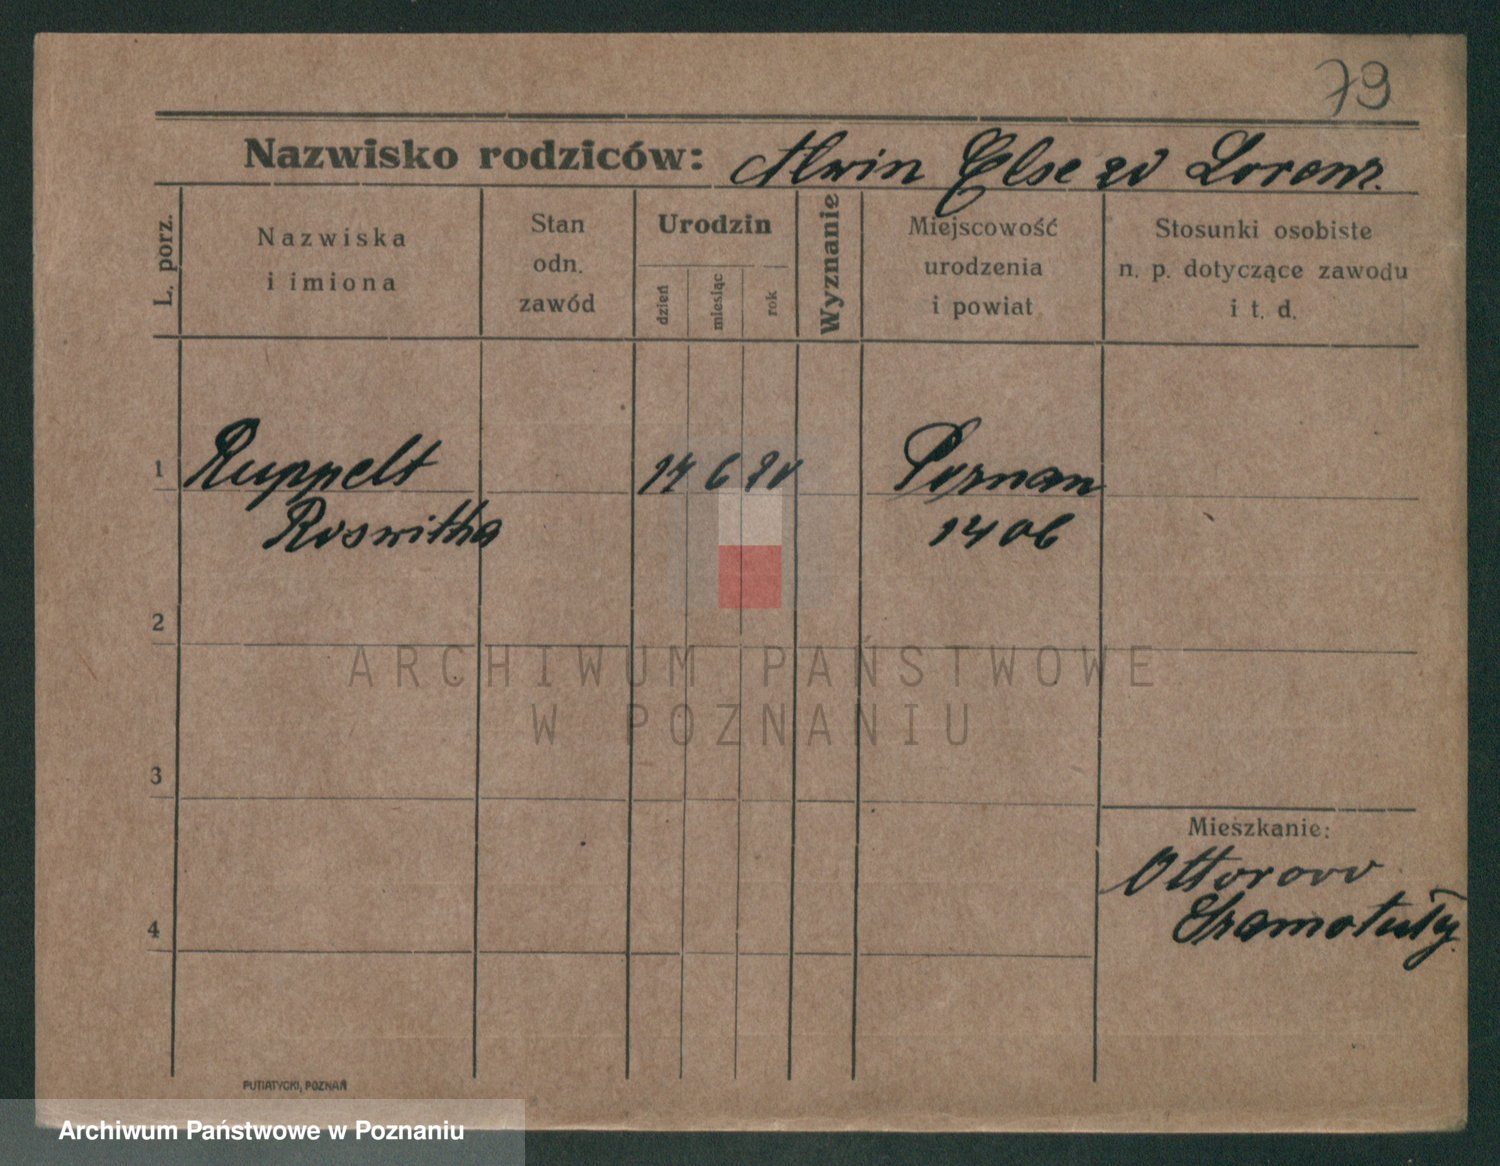 79
Nazwisko rodziców: Alwin Else zd Lorenz.
L. porz.
Nazwiska
i imiona
Stan
odn.
zawód
Urodzin
dzień
miesiąc
rok
Wyznanie
Miejscowość
urodzenia
i powiat
Stosunki osobiste
n. p. dotyczące zawodu
i t. d.
1 Ruppelt 14 6 Poznan
Roswitha 1406
2
ARCHIWUM PAŃSTWOWE
W POZNANIU
3
Mieszkanie:
Ottorowo
4 Szamotuły.
PUTIATYCKI, POZNAŃ
Archiwum Państwowe w Poznaniu